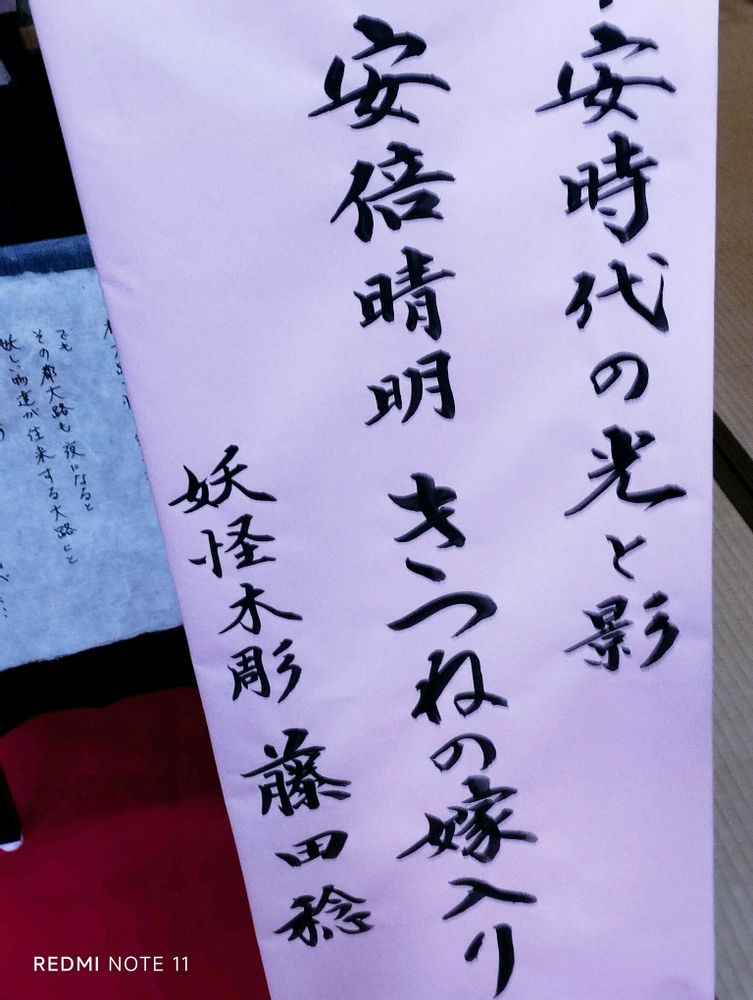 安時代の光と影
安倍晴明 きつねの嫁入り
妖怪木彫 藤田稔
でも
その都大路も夜になると
妖しい物達が往来する大路にと
REDMI NOTE 11